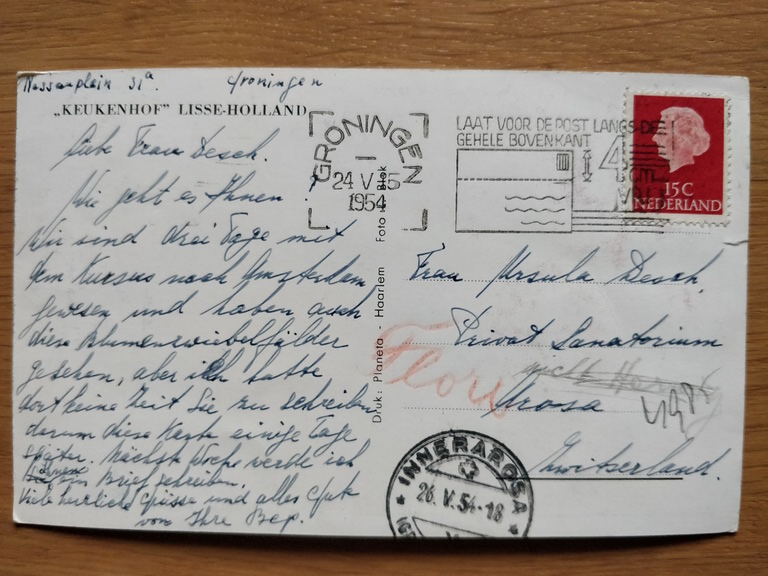 Nassauplein 31a. Groningen
„KEUKENHOF" LISSE-HOLLAND
Liebe Frau Desch.
Wie geht es Ihnen ?
Wir sind drei Tage mit
dem Kursus nach Amsterdam
gewesen und haben auch
diese Blumenzwiebelfelder
gesehen, aber ich hatte
dort keine Zeit Sie zu schreiben
darum diese Karte einige Tage
später. Nächste Woche werde ich
Brief schreiben.
Viele herzliche Grüsse und alles Gute
von Ihre Bep.
GRONINGEN
24 V 15
1954
LAAT VOOR DE POST LANGS DE
GEHELE BOVENKANT
4 cm
VRIJ
15 C
NEDERLAND
Druk: Planeta - Haarlem Foto Blok
Frau Ursula Desch.
Privat Sanatorium
nicht
Arosa
Zwitserland.
Flora
INNERAROSA
26. V. 54-18